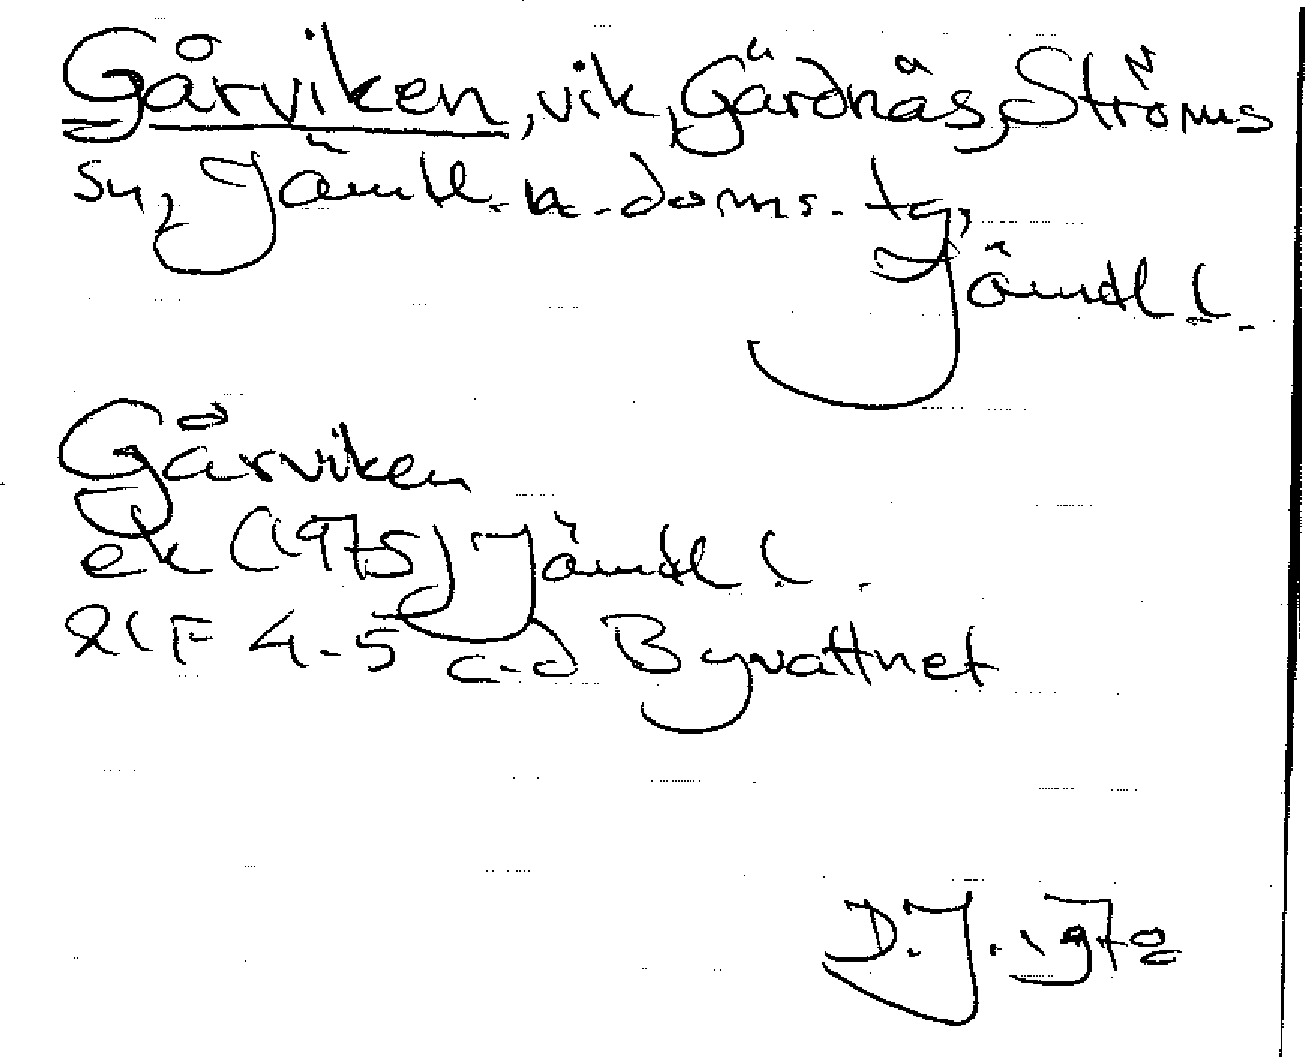 Gårviken, vik, Gärdnäs, Ströms
sn, Jämtl. n. doms. tg,
Jämtl l.
Gårviken
ek (1975) Jämtl l.
21F 4-5 c-d Byvattnet
D.J. 1978